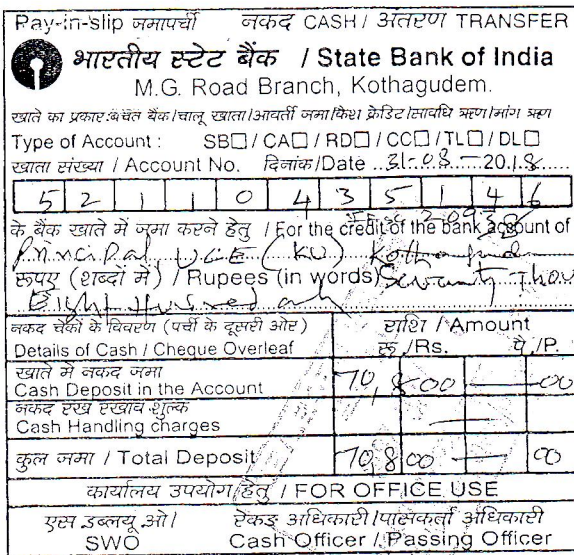 Pay-in-slip जमापर्ची नकद CASH / अंतरण TRANSFER
भारतीय स्टेट बैंक / State Bank of India
M.G. Road Branch, Kothagudem.
खाते का प्रकार:बचत बैंक/चालू खाता/आवर्ती जमा/कैश क्रेडिट/सावधि ऋण/मांग ऋण
Type of Account : SB□ / CA□ / RD□ / CC□ / TL□ / DL□
खाता संख्या / Account No. दिनांक/Date 31-08-2018
5 2 1 1 0 4 3 5 1 4 6
के बैंक खाते में जमा करने हेतु / For the credit of the bank account of
Principal UCE (KU) Kothagudem
रूपए (शब्दों में) / Rupees (in words) Seventy Thou
Eight Hundred only
नकद चेकों के विवरण (पर्ची के दूसरी ओर) राशि / Amount
Details of Cash / Cheque Overleaf रू./Rs. पै./P.
खाते में नकद जमा
Cash Deposit in the Account 70,800 — 00
नकद रख रखाव शुल्क
Cash Handling charges —
कुल जमा / Total Deposit 70,800 — 00
कार्यालय उपयोग हेतु / FOR OFFICE USE
एस डब्लयू ओ/ रोकड़ अधिकारी/पासकर्ता अधिकारी
SWO Cash Officer / Passing Officer